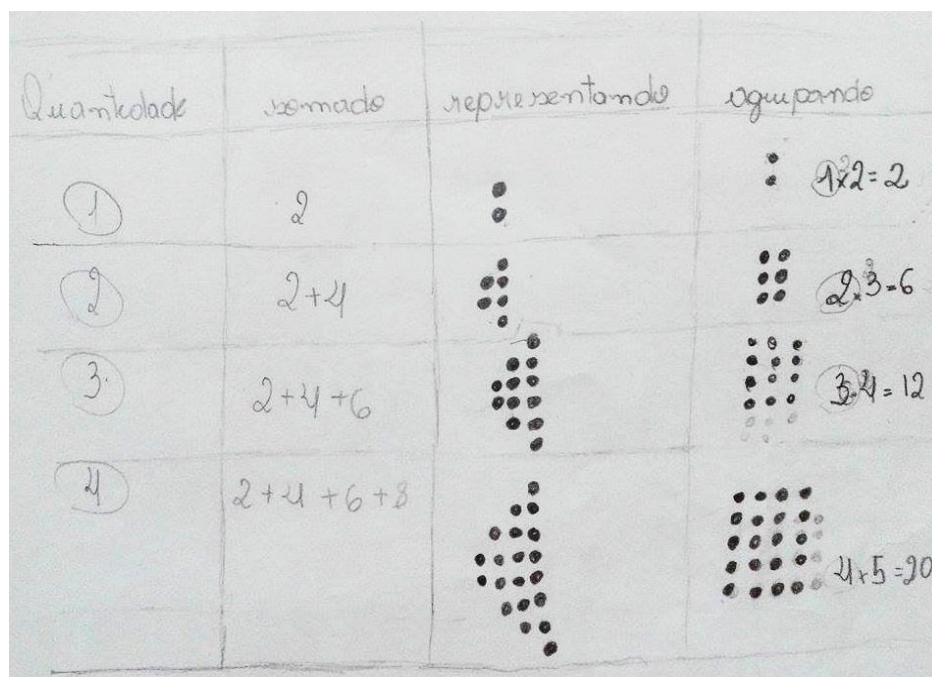 Quantidade somado representando agrupando
1 2 1×2=2
2 2+4 2×3=6
3. 2+4+6 3.4=12
4 2+4+6+8 4×5=20